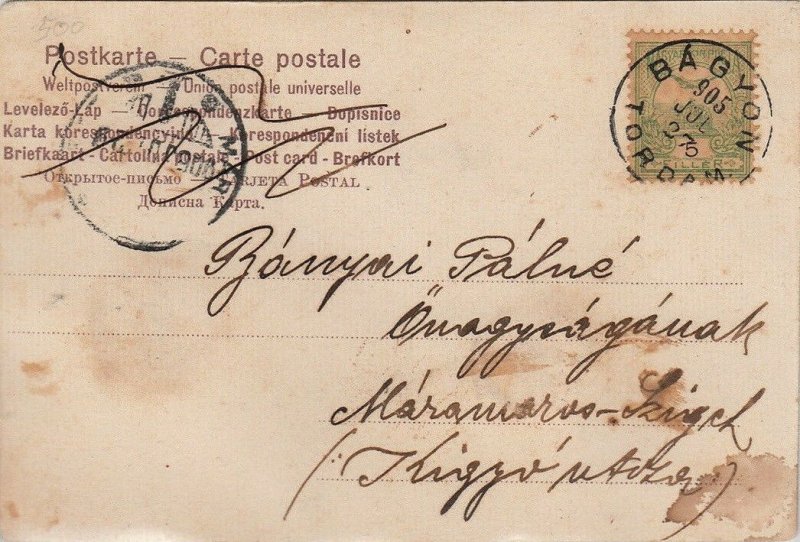 500
Postkarte – Carte postale
Weltpostverein – Union postale universelle
Levelező-Lap – Korrespondenzkarte – Dopisnice
Karta korespondencyjna – Korespondenční lístek
Briefkaart – Cartolina postale – Post card – Brefkort
Открытое-письмо – Tarjeta Postal
Дописна Карта.
BÁGYON
905
JUL
TORDA M.
FILLER
Bányai Pálné
Őnagyságának
Máramaros-Sziget
(Kigyó utcza)